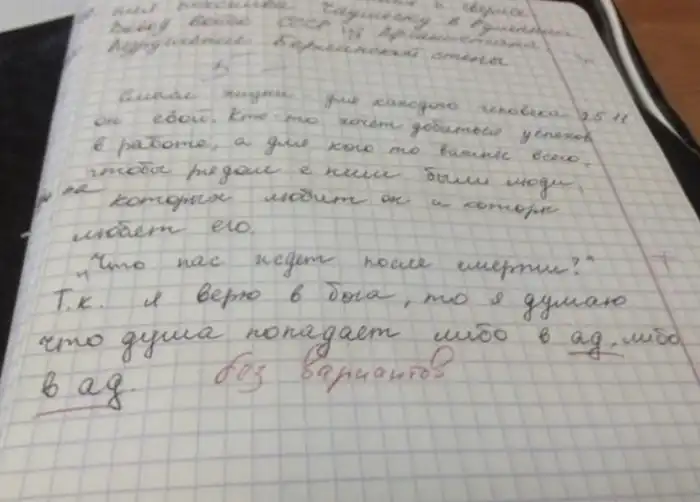 Вывод войск СССР из Афганистана
Разрушение Берлинской стены
Смысл жизни для каждого человека 25.11
он свой. Кто то хочет добиться успехов
в работе, а для кого то важнее всего,
чтобы рядом с ним были люди,
которых любит он и которые
любят его.
"Что нас ждет после смерти?"
Т.к. я верю в бога, то я думаю
что душа попадает либо в ад, либо
в ад. без вариантов